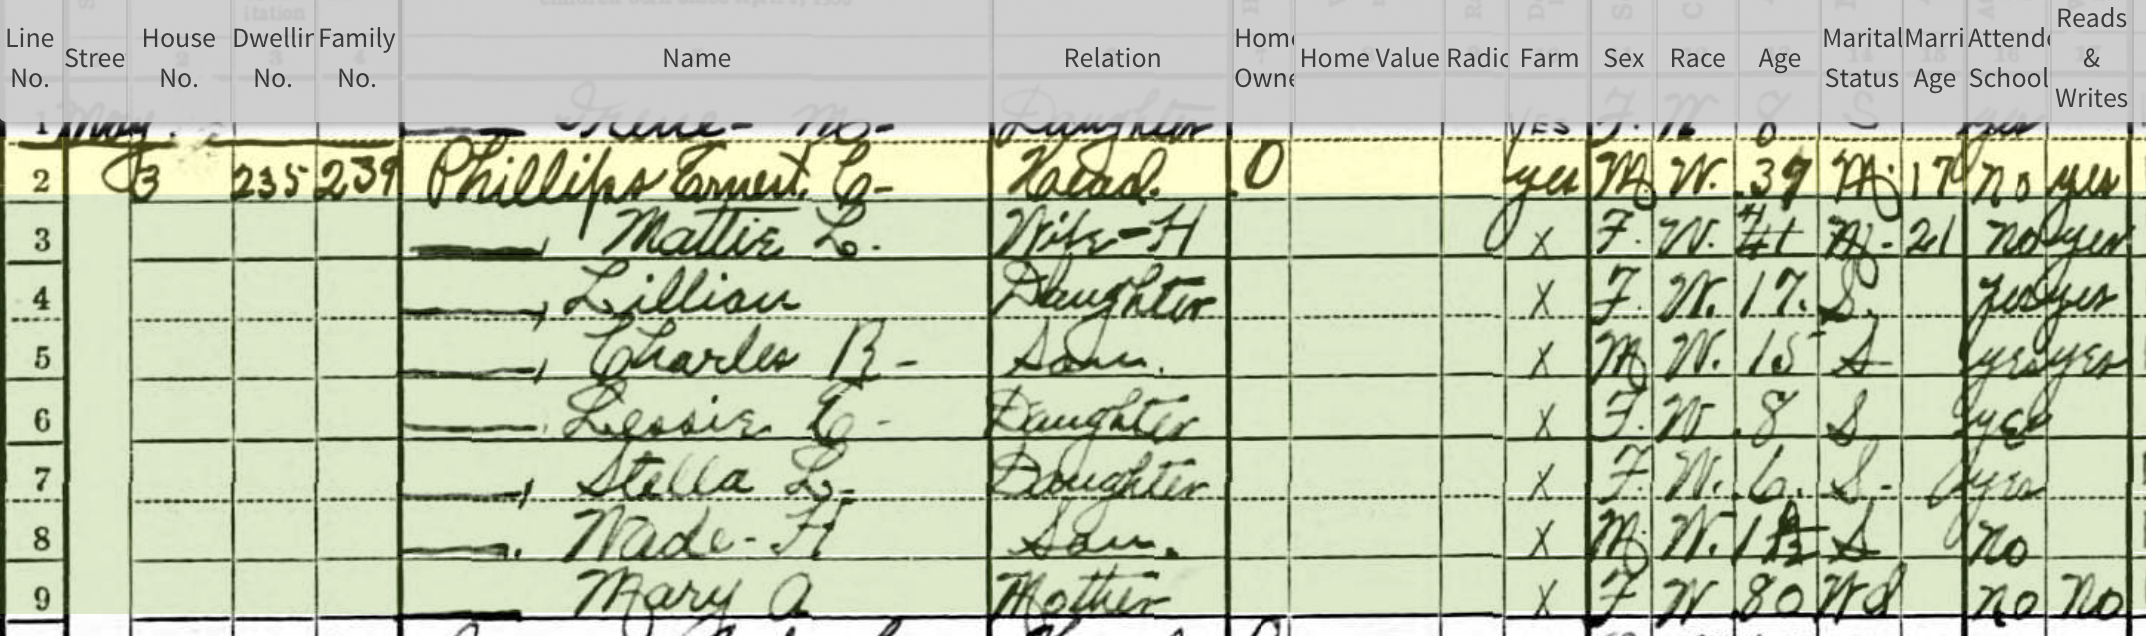 Line No. Stree House No. Dwellir No. Family No. Name Relation Home Owne Home Value Radio Farm Sex Race Age Marital Status Marri Age Attende School Reads & Writes
1 May. Irene M- Daughter yes F. W 8 S yes
2 3 235 239 Phillips Ernest C- Head. O yes M. W. 39 M. 17 no yes
3 ———, Mattie L. Wife-H X F. W. M- 21 no yes
4 ———, Lillian Daughter X F. W. 17. S. yes yes
5 ———, Charles R- Son. X M W. 15 S yes yes
6 ———, Lessie E- Daughter X F. W. 8 S yes
7 ———, Stella L- Daughter X F. W. 6. S- yes
8 ———. Wade-H Son. X M W. S no
9 ——— Mary A Mother X F W 80 Wd no No